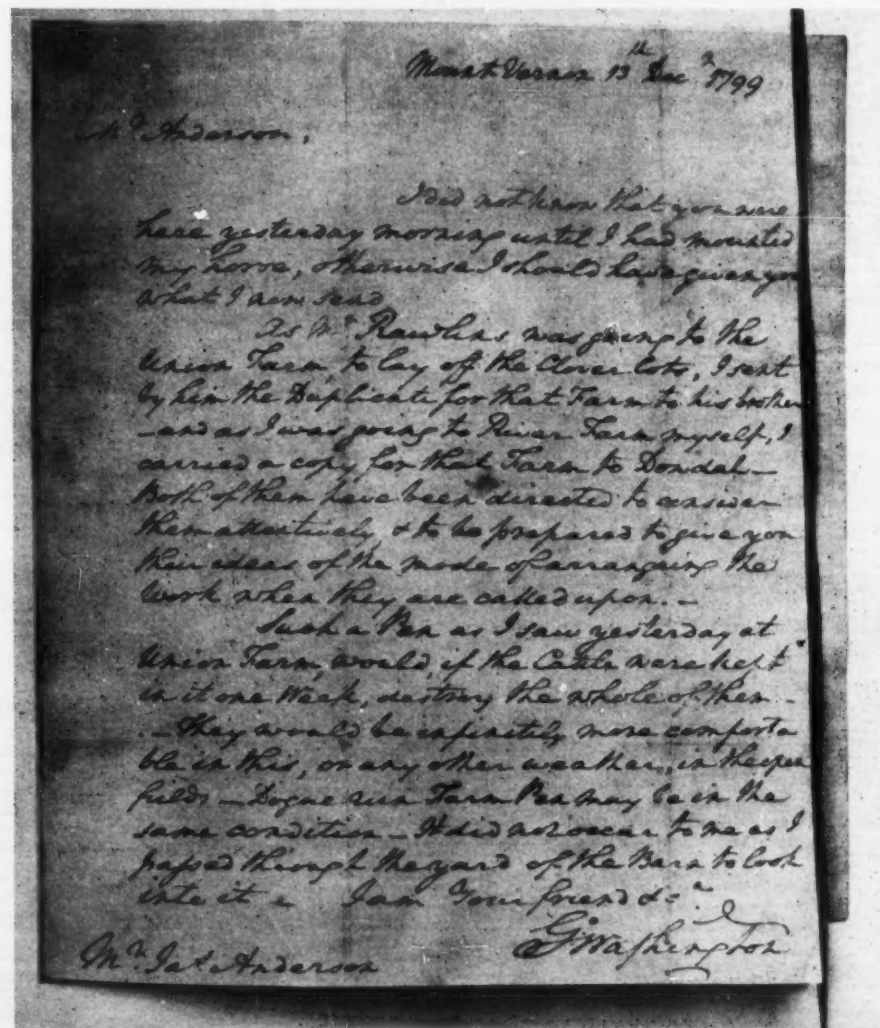 Mount Vernon 13th Decr 1799
Mr Anderson,
I did not know that you were
here yesterday morning until I had mounted
my horse, otherwise I should have given you
what I now send
As Mr Rawlins was going to the
Union Farm, to lay off the Clover lots, I sent
by him the Duplicate for that Farm to his brother
—and as I was going to River Farm myself, I
carried a copy for that Farm to Dowdal—
Both of them have been directed to consider
them attentively, & to be prepared to give you
their ideas of the mode of arranging the
Work when they are called upon.—
Such a Pen as I saw yesterday at
Union Farm, would, if the Cattle were kept
in it one Week, destroy the whole of them.—
—They would be infinitely more comforta
ble in this, or any other weather, in the open
fields—Dogue run Farm Pen may be in the
same condition—It did not occur to me as I
passed through the yard of the Barn to look
into it— I am Your friend &ca
Go Washington
Mr Jas Anderson